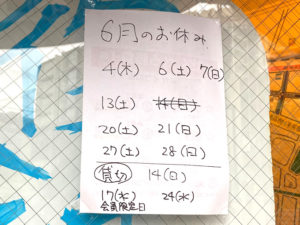 6月のお休み
4(木) 6(土) 7(日)
13(土) 14(日)
20(土) 21(日)
27(土) 28(日)
貸切 14(日)
17(水) 24(水)
会員限定日